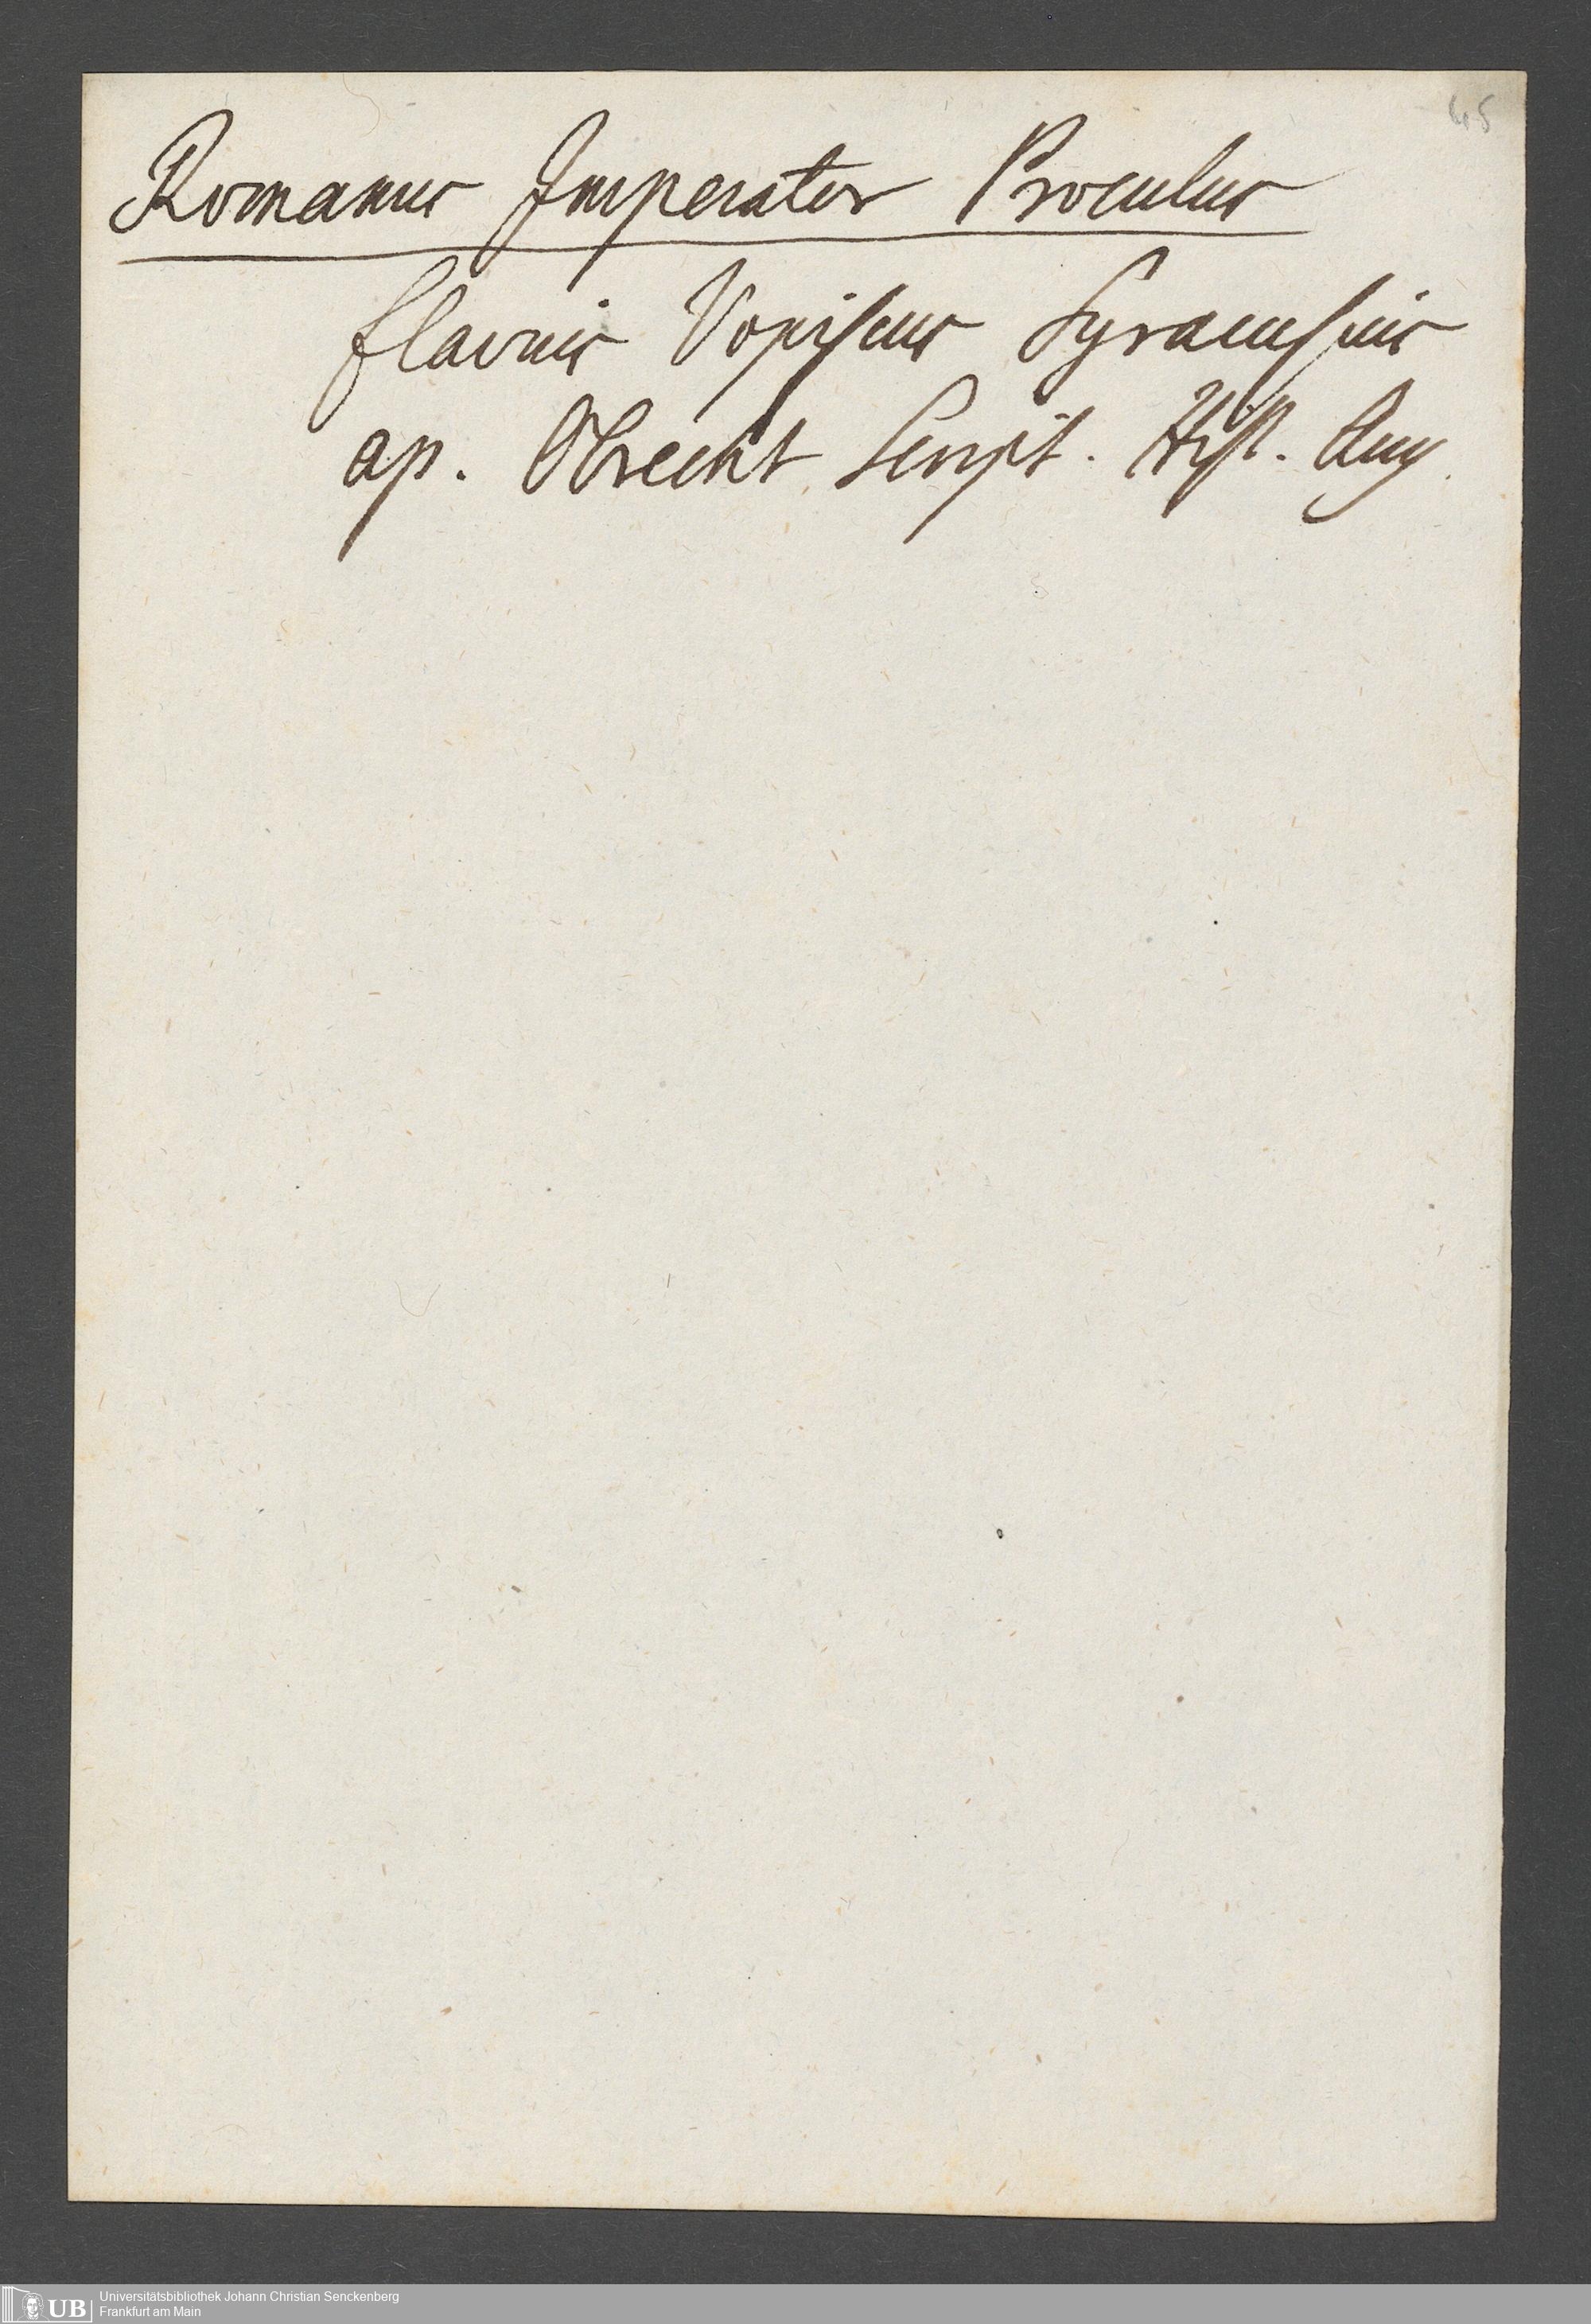 45
Romanus Imperator Proculus
flavius Vopiscus Syracusius
ap. Obrecht Script. Hist. Aug.
UB
Universitätsbibliothek Johann Christian Senckenberg
Frankfurt am Main